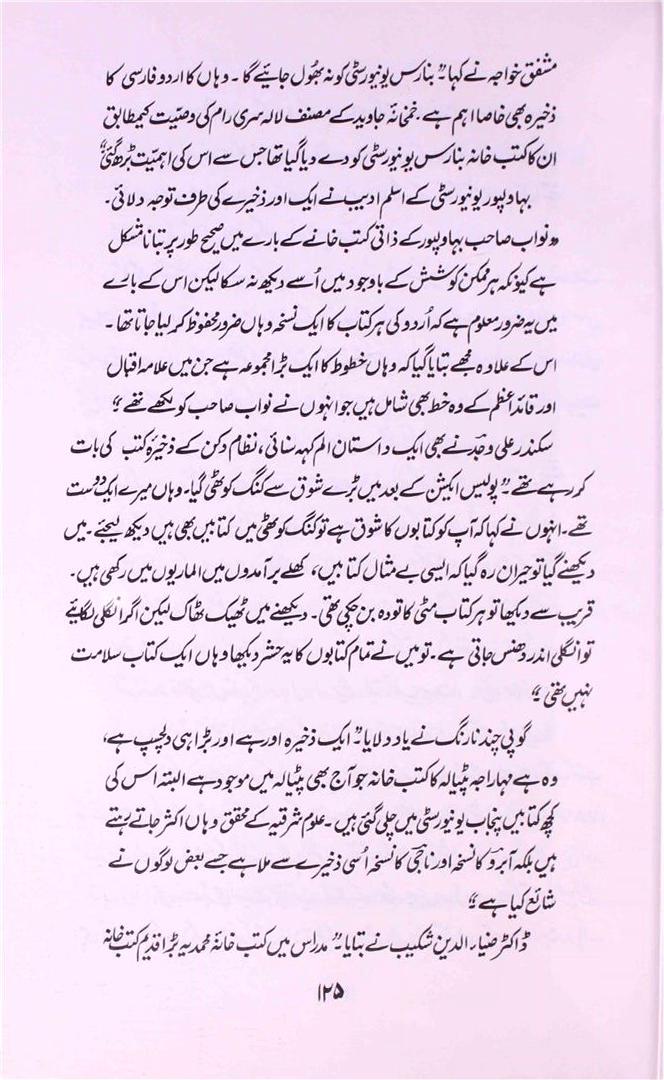 مشفق خواجہ نے کہا۔” بنارس یونیورسٹی کو نہ بھُول جائیے گا۔ وہاں کا اردو فارسی کا
ذخیرہ بھی خاصا اہم ہے۔ خمخانۂ جاوید کے مصنف لالہ سری رام کی وصیّت کیمطابق
ان کا کتب خانہ بنارس یونیورسٹی کو دے دیا گیا تھا جس سے اس کی اہمیّت بڑھ گئی“
بہاولپور یونیورسٹی کے اسلم ادیب نے ایک اور ذخیرے کی طرف توجہ دلائی۔
”نواب صاحب بہاولپور کے ذاتی کتب خانے کے بارے میں صحیح طور پر بتانا مشکل
ہے کیونکہ ہر ممکن کوشش کے باوجود میں اُسے دیکھ نہ سکا لیکن اس کے بارے
میں یہ ضرور معلوم ہے کہ اُردو کی ہر کتاب کا ایک نسخہ وہاں ضرور محفوظ کر لیا جاتا تھا۔
اس کے علاوہ مجھے بتایا گیا کہ وہاں خطوط کا ایک بڑا مجموعہ ہے جن میں علامہ اقبال
اور قائد اعظم کے وہ خط بھی شامل ہیں جو انہوں نے نواب صاحب کو لکھے تھے“
سکندر علی وجد نے بھی ایک داستان الم کہہ سنائی، نظام دکن کے ذخیرۂ کتب کی بات
کر رہے تھے۔” پولیس ایکشن کے بعد میں بڑے شوق سے کنگ کوٹھی گیا۔ وہاں میرے ایک دوست
تھے۔ انہوں نے کہا کہ آپ کو کتابوں کا شوق ہے تو کنگ کوٹھی میں کتابیں بھی ہیں دیکھ لیجئے۔ میں
دیکھنے گیا تو حیران رہ گیا کہ ایسی بے مثال کتابیں، کھلے برآمدوں میں الماریوں میں رکھی ہیں۔
قریب سے دیکھا تو ہر کتاب مٹی کا تودہ بن چکی تھی۔ دیکھنے میں ٹھیک ٹھاک لیکن اگر انگلی لگائیے
تو انگلی اندر دھنس جاتی ہے۔ تو میں نے تمام کتابوں کا یہ حشر دیکھا وہاں ایک کتاب سلامت
نہیں تھی“
گوپی چند نارنگ نے یاد دلایا۔” ایک ذخیرہ اور ہے اور بڑا ہی دلچسپ ہے،
وہ ہے مہاراجہ پٹیالہ کا کتب خانہ جو آج بھی پٹیالہ میں موجود ہے البتہ اس کی
کچھ کتابیں پنجاب یونیورسٹی میں چلی گئی ہیں۔ علوم شرقیہ کے محقق وہاں اکثر جاتے رہتے
ہیں بلکہ آبرو کا نسخہ اور ناجی کا نسخہ اُسی ذخیرے سے ملا ہے جسے بعض لوگوں نے
شائع کیا ہے“
ڈاکٹر ضیاء الدین شکیب نے بتایا۔” مدراس میں کتب خانۂ محمدیہ بڑا قدیم کتب خانہ
۱۲۵